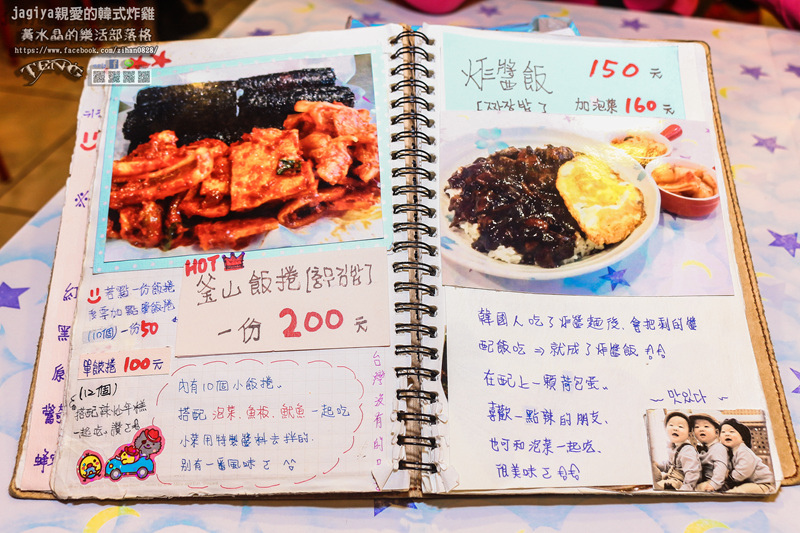 jagiya親愛的韓式炸雞
黃水晶的樂活部落格
https://www.facebook.com/zihan0828/
TENG
HOT
釜山飯捲 [충무김밥]
一份 200 元
若點一份飯捲
(10個)一份50
單飯捲 100元
(12個)
搭配辣炒年糕
一起吃。讚
內有10個小飯捲。
搭配 泡菜、魚板、魷魚 一起吃
小菜用特製醬料去拌的.
別有一番風味ㄛ ^^
台灣沒有的
炸醬飯 150 元
加泡菜 160元
韓國人吃了炸醬麵後、會把剩的醬
配飯吃 ⇒ 就成了炸醬飯
在配上一顆荷包蛋。
~ 맛있다 ~
喜歡一點辣的朋友、
也可和泡菜一起吃、
很美味ㄛ